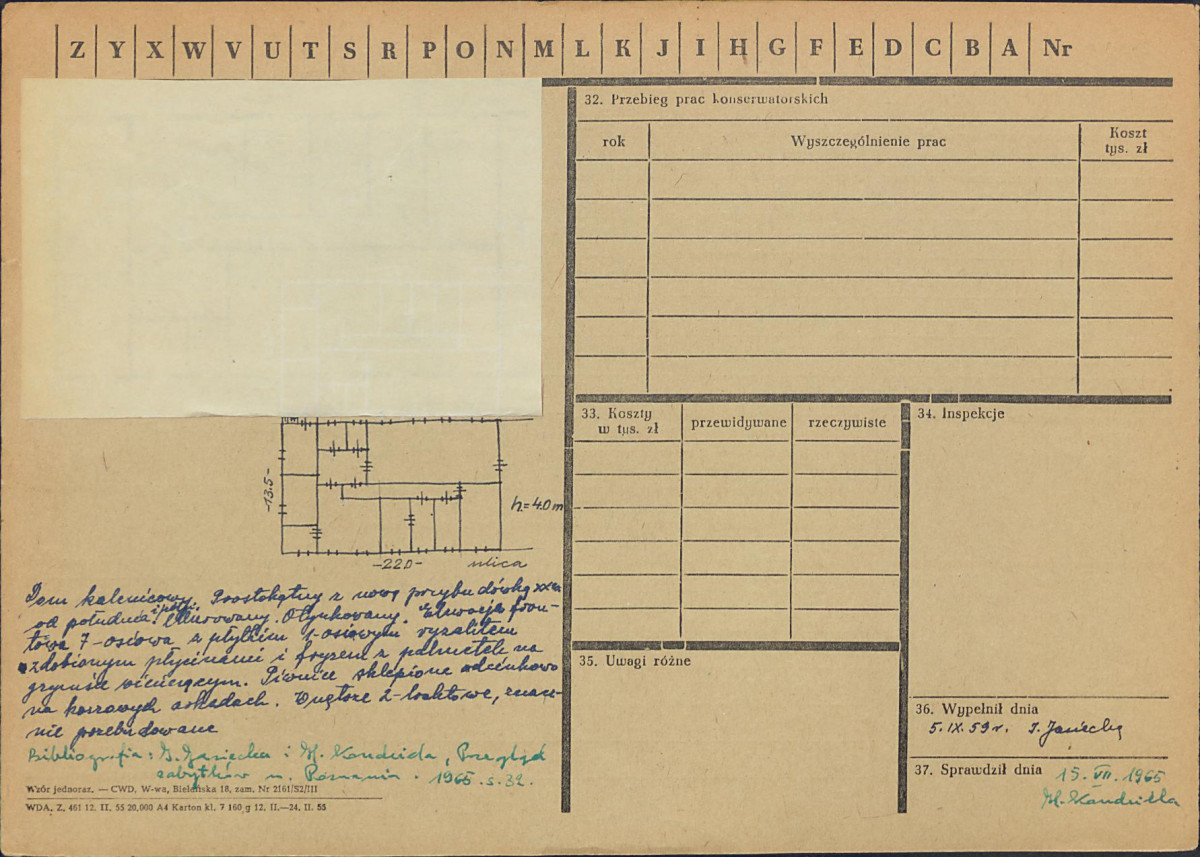 Z Y X W V U T S R P O N M L K J I H G F E D C B A Nr
32. Przebieg prac konserwatorskich
rok
Wyszczególnienie prac
Koszt
tys. zł
33. Koszty
w tys. zł
przewidywane
rzeczywiste
34. Inspekcje
-13.5-
h=4.0m
-22.0-
ulica
Dom kalenicowy. Prostokątny z nową przybudówką XX w
od południa i półn. Murowany. Otynkowany. Elewacja fron-
towa 7-osiowa z płytkim 1-osiowym ryzalitem
zdobionym płycinami i fryzem z palmetek na
gzymsie wieńczącym. Piwnice sklepione odcinkowo
na koszowych arkadach. Wnętrze 2-traktowe, znacz-
nie przebudowane
Bibliografia: I. Jasiecka i H. Kondziela, Przegląd
zabytków m. Poznania. 1965 s. 32.
Wzór jednoraz. — CWD, W-wa, Bielańska 18, zam. Nr 2161/S2/III
WDA, Z. 461 12. II. 55 20,000 A4 Karton kl. 7 160 g 12. II.—24. II. 55
35. Uwagi różne
36. Wypełnił dnia
5. IX. 59 r. I. Jasiecka
37. Sprawdził dnia
15. VII. 1965
H. Kondziela